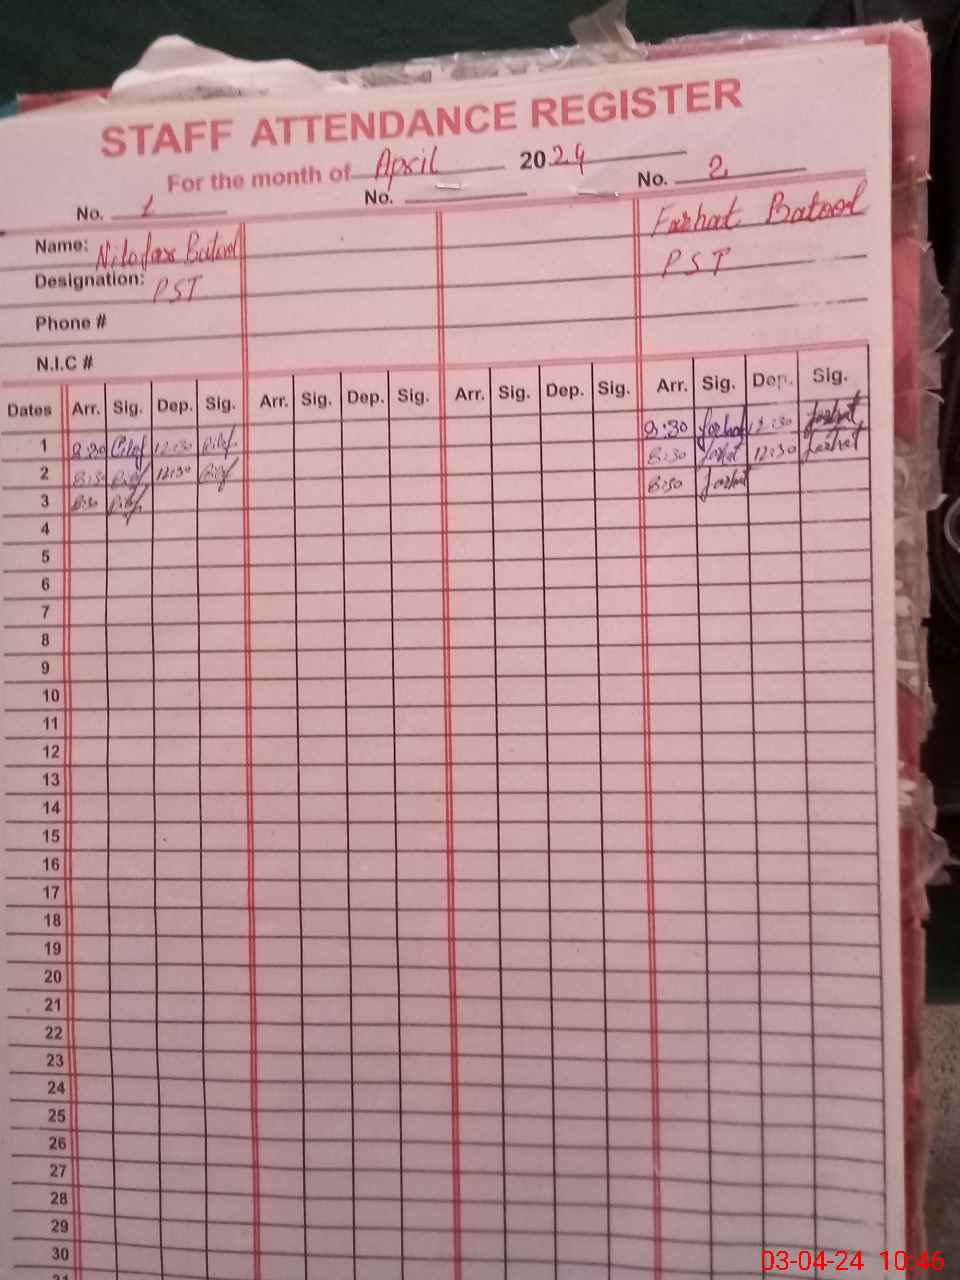 STAFF ATTENDANCE REGISTER
For the month of April 2024
No. 1 No. No. 2
Name: Nilofar Batool Farhat Batool
Designation: PST PST
Phone #
N.I.C #
Dates Arr. Sig. Dep. Sig. Arr. Sig. Dep. Sig. Arr. Sig. Dep. Sig. Arr. Sig. Dep. Sig.
1 8:30 Nilof 12:30 Nilof 8:30 Farhat 12:30 Farhat
2 8:30 Nilof 12:30 Nilof 8:30 Farhat 12:30 Farhat
3 8:30 Nilof 8:30 Farhat
4
5
6
7
8
9
10
11
12
13
14
15
16
17
18
19
20
21
22
23
24
25
26
27
28
29
30
03-04-24 10:46